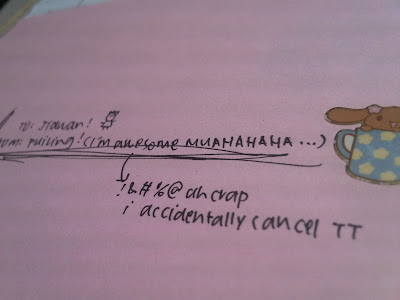 To: Jiawan!
From: ruiting! (i'm awesome MUAHAHAHA ...)
!&#%@ ah crap
i accidentally cancel TT